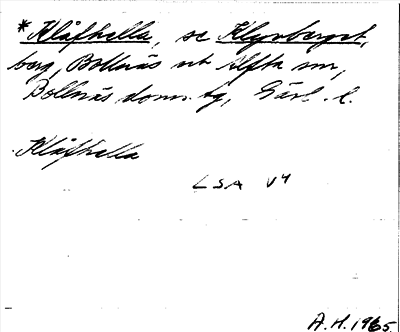 *Klåfhella, se Klevberget,
berg, Bollnäs o. Alfta snr,
Bollnäs doms. tg, Gävl. l.
Klåfhella
LSA V4
A.H. 1965.